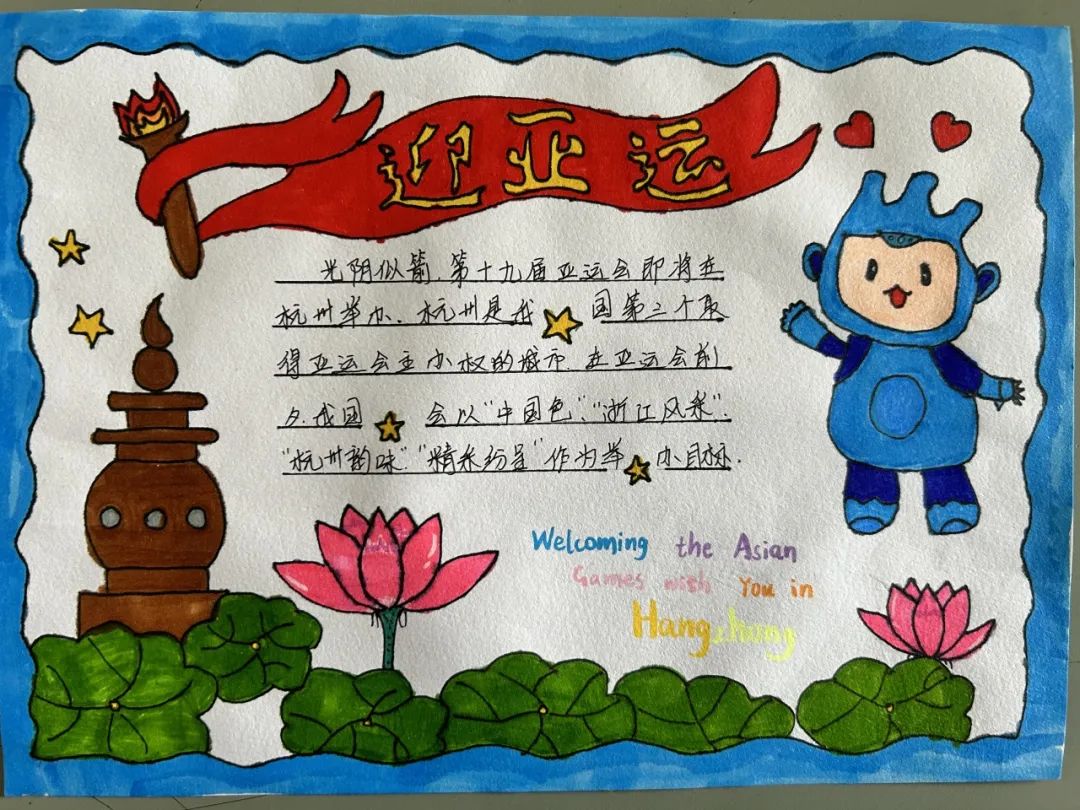 迎亚运
光阴似箭,第十九届亚运会即将在
杭州举办、杭州是我国第三个取
得亚运会主办权的城市.在亚运会前
夕.我国会以"中国色"、"浙江风采".
"杭州韵味"."精采纷呈"作为举办目标.
Welcoming the Asian
Games wish You in
Hangzhong